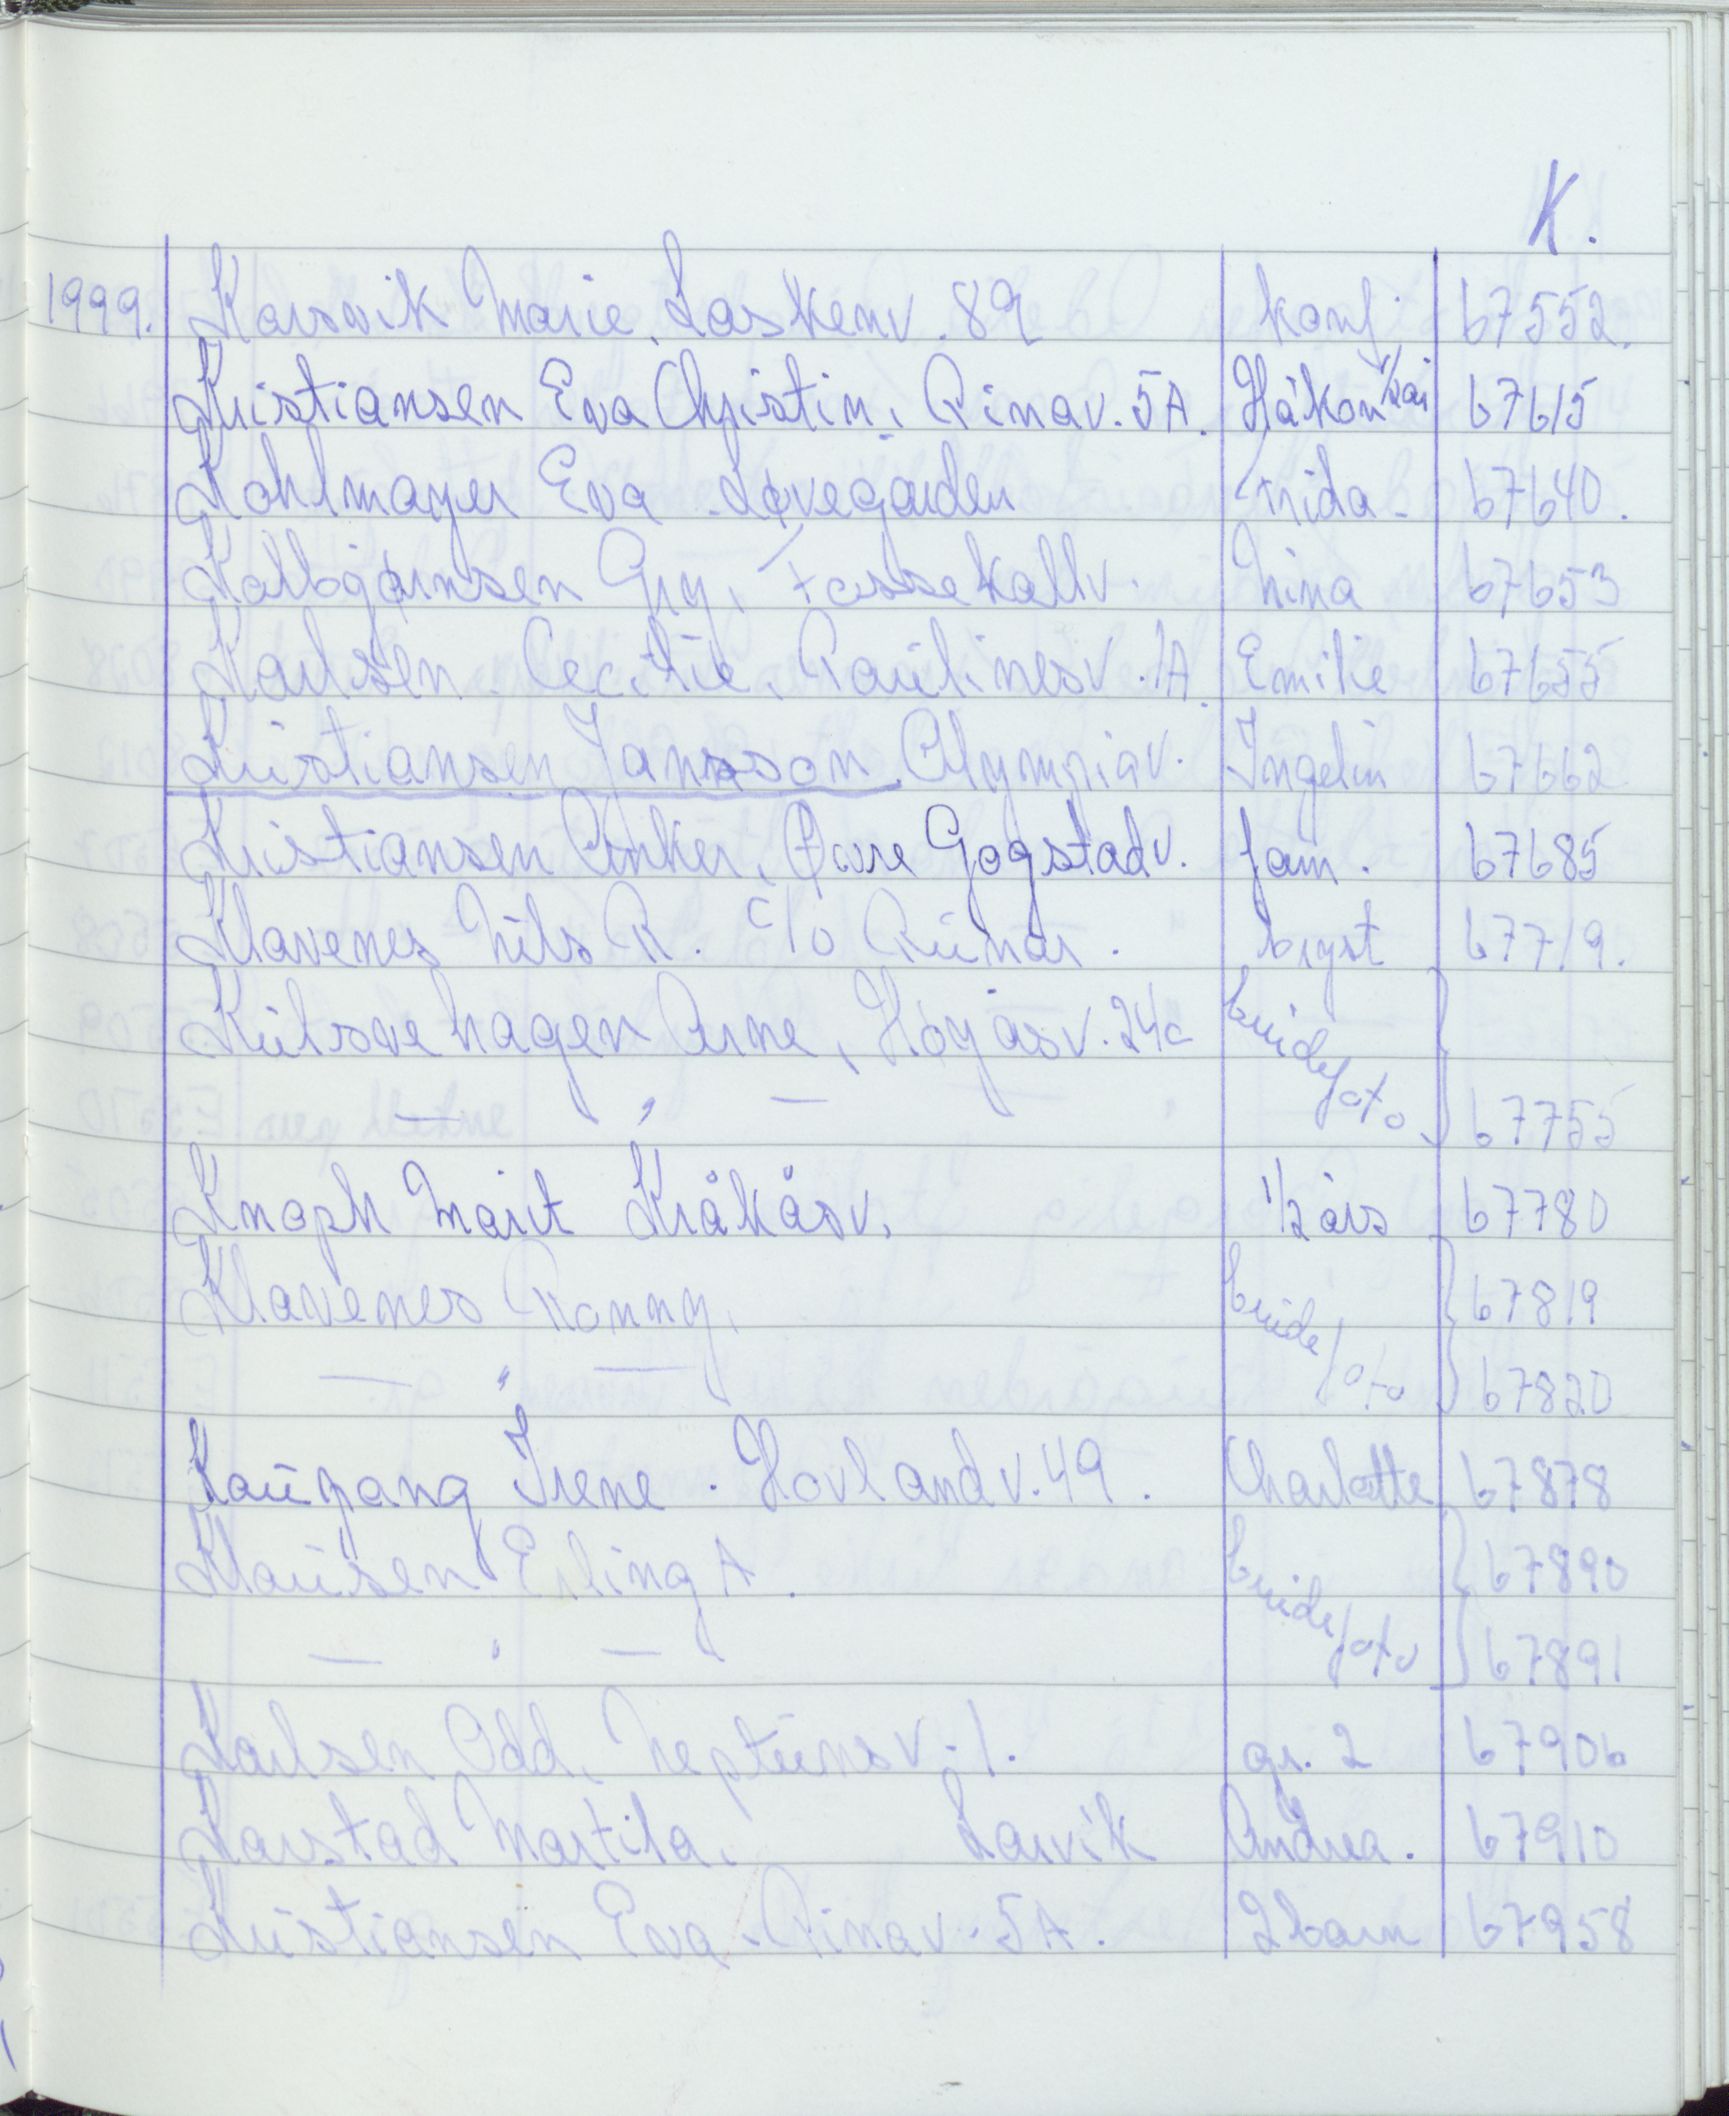 K.
1999. Korsvik Marie, Laskenv. 89 konf. 67552.
Kristiansen Eva Christin, Rinav. 5A. Håkon 1/2 år 67615
Kohlmayer Eva Løvegården Frida 67640.
Kolbjørnsen Gry, Fossekallv. Nina 67653
Karlsen Cecilie, Paulinesv. 1A. Emilie 67655
Kristiansen Jansson, Olympiav. Ingelin 67662
Kristiansen Anker, Øvre Gogstadv. fam. 67685
Klavenes Nils R. c/o Runar. bryst 67719.
hagen Arne, Høyåsv. 24c brudefoto
— " — 67755
Knoph Marit Kråkåsv. 1/2 års 67780
Klavenes Ronny, brudefoto 67819
— " — 67820
Kaupang Irene. Hovlandv. 49. Charlotte 67878
Klausen Erling A. brudefoto 67890
— " — 67891
Karlsen Odd, Neptunsv. 1. gr. 2 67906
Karstad Martila, Larvik Andrea. 67910
Kristiansen Eva. Rinav. 5A. 2 barn 67958